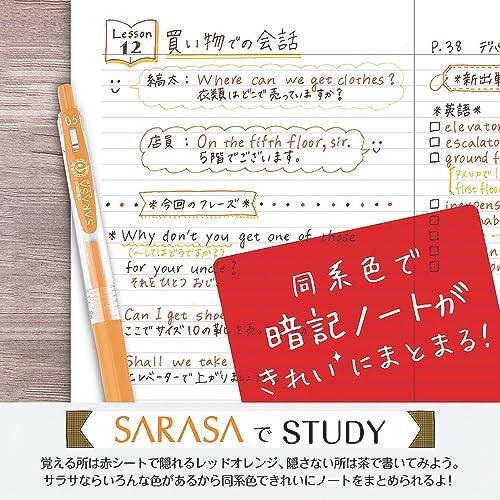 Lesson 12
買い物での会話
P.38
縞太：Where can we get clothes?
衣類はどこで売っていますか?
*新出単
*英語*
店員：On the fifth floor, sir.
5階でございます。
elevator
escalato
ground f
アメリカで
first floor
*今回のフレーズ*
*Why don't you get one of those
(〜してはどうですか?)
for your uncle?
それをひとつ おじ
Can I get shoe
ここでサイズ10の靴
Shall we take
エレベーターで上がりましょ
0.5
SARASA
同系色で
暗記ノートが
きれいにまとまる!
SARASAでSTUDY
覚える所は赤シートで隠れるレッドオレンジ、隠さない所は茶で書いてみよう。
サラサならいろんな色があるから同系色できれいにノートをまとめられるよ!